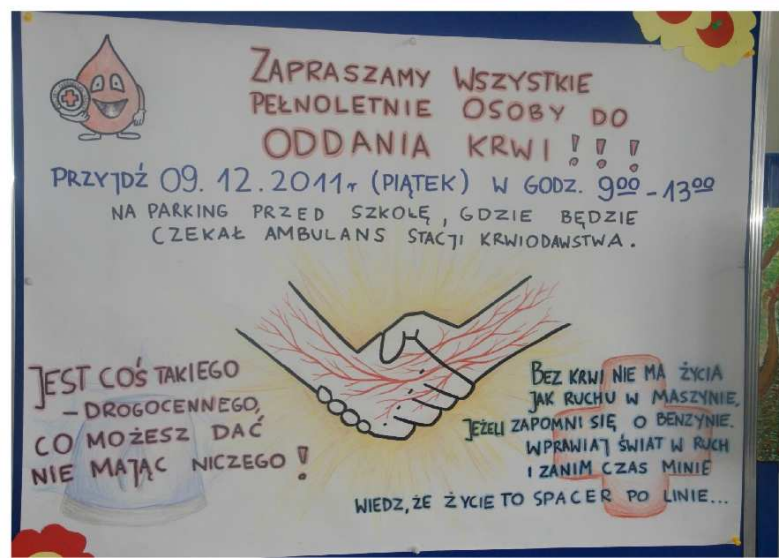 ZAPRASZAMY WSZYSTKIE
PEŁNOLETNIE OSOBY DO
ODDANIA KRWI!!!
PRZYJDŹ 09.12.2011r (PIĄTEK) W GODZ. 9⁰⁰-13⁰⁰
NA PARKING PRZED SZKOŁĘ, GDZIE BĘDZIE
CZEKAŁ AMBULANS STACJI KRWIODAWSTWA.
JEST COŚ TAKIEGO
– DROGOCENNEGO,
CO MOŻESZ DAĆ
NIE MAJĄC NICZEGO!
BEZ KRWI NIE MA ŻYCIA
JAK RUCHU W MASZYNIE,
JEŻELI ZAPOMNI SIĘ O BENZYNIE.
WPRAWIAJ ŚWIAT W RUCH
I ZANIM CZAS MINIE
WIEDZ, ŻE ŻYCIE TO SPACER PO LINIE...